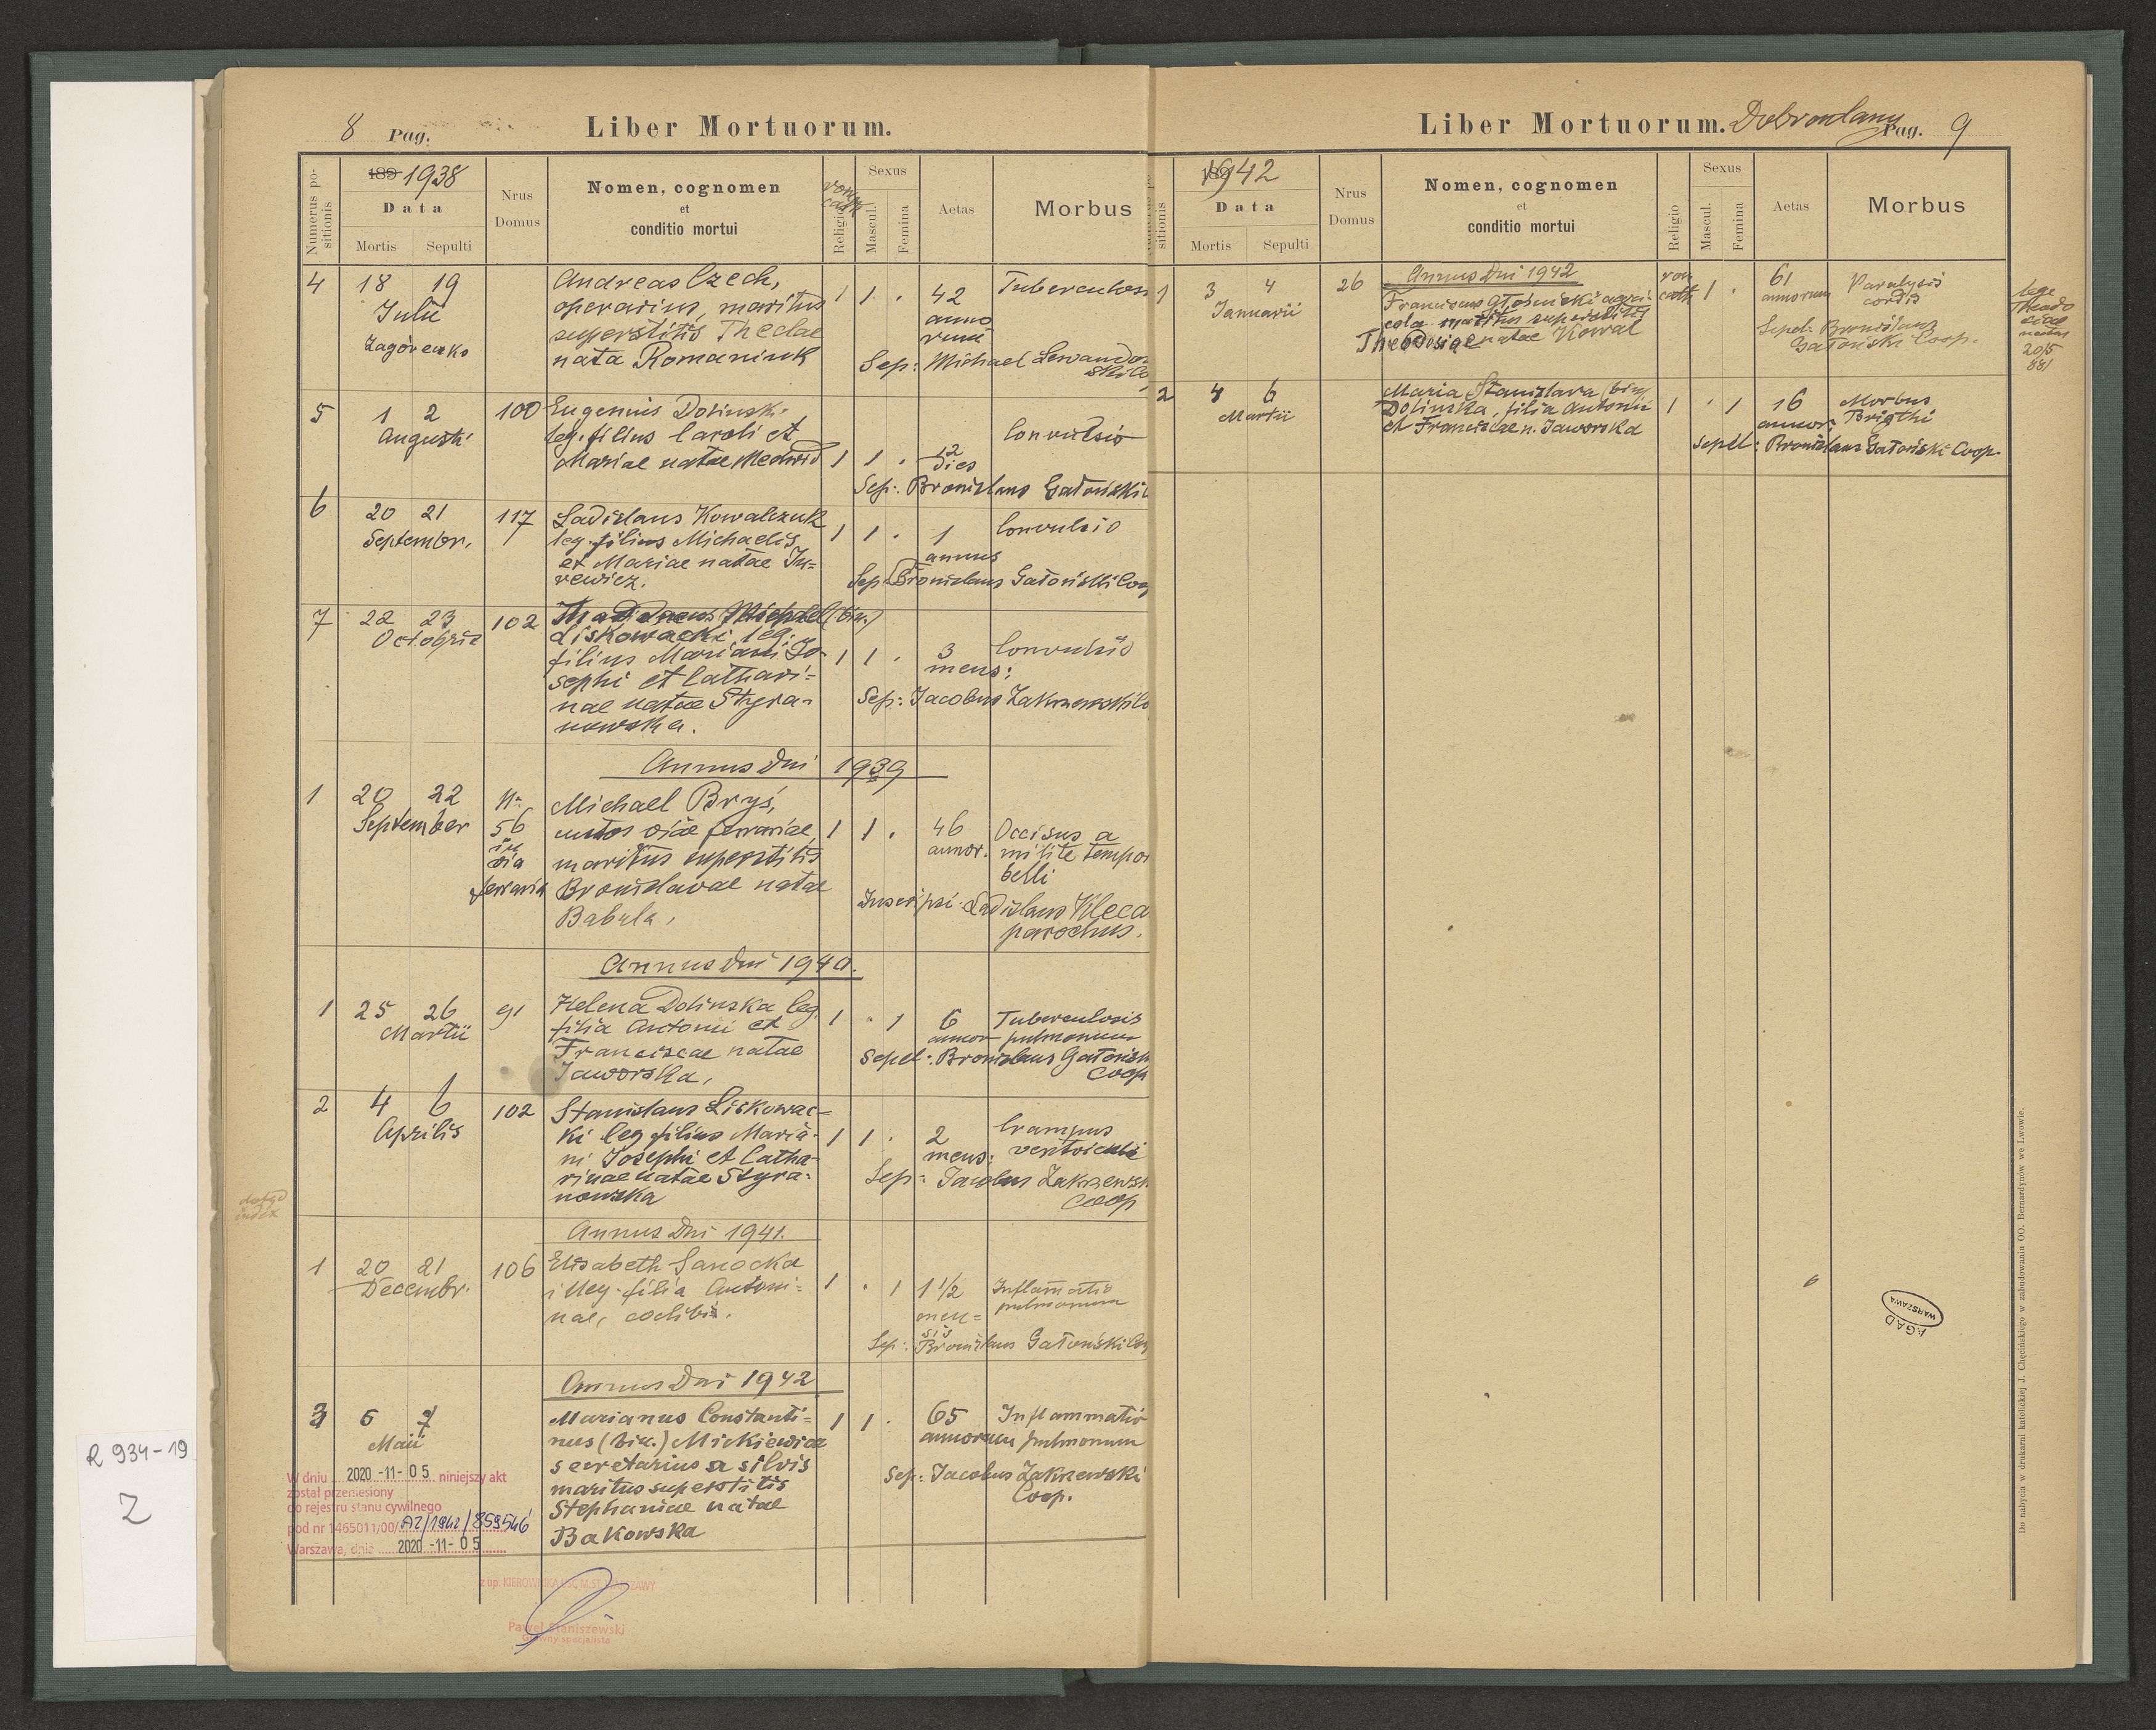 8 Pag.
Liber Mortuorum.
Numerus positionis
189 1938
Data
Mortis Sepulti
Nrus Domus
Nomen, cognomen
et
conditio mortui
Religio
rom. cath.
Sexus
Mascul. Femina
Aetas
Morbus
4 18 19 Andreas Czech, 1 1 . 42 Tuberculos
Julii operarius, maritus anno
Zagórecko superstitis Theclae rum
nata Romaniuk Sep: Michael Lewandow
ski Co
5 1 2 100 Eugenius Dolinski
Augusti leg. filius Caroli et Convulsio
Mariae natae Medwid 1 1 . 12
dies
Sep: Bronislaus Gatoński
6 20 21 117 Ladislaus Kowalczuk 1 1 . 1 Convulsio
Septembr. leg. filius Michaelis annus
et Mariae natae Ju=
rewicz. Sep: Bronislaus Gatoński Coop
7 22 23 102 Thaddaeus Michael (bin.)
Octobris Liskowacki leg.
filius Mariani Jo- 1 1 . 3 Convulsio
sephi et Cathari= mens:
nae natae Styra- Sep: Jacobus Zakrzewski Co
nowska.
Annus Dni 1939
1 20 22 N= Michael Bryś,
September 56 custos viae ferrariae, 1 1 . 46 Occisus a
in via maritus superstitis annor. milite tempor
ferraria Bronislavae natae belli
Babula. Inscripsi: Ladislaus Kleca
parochus.
Annus Dni 1940.
1 25 26 91 Helena Dolinska leg. 1 . 1 6 Tuberculosis
Martii filia Antonii et annor pulmonum
Franciscae natae Sepel: Bronislaus Gatońsk
Jaworska. Coop
2 4 6 102 Stanislaus Liskowac=
Aprilis ki leg filius Maria- 1 1 . 2 Crampus
ni Josephi et Catha- mens: ventriculi
rinae natae Styra- Sep: Jacobus Zakrzewsk
nowska Coop
Annus Dni 1941.
1 20 21 106 Elisabeth Sanocka
Decembr. illeg. filia Antoni= 1 . 1 1 1/2 Inflammatio
nae, coelibis. men= pulmonum
sis
Sep: Bronislaus Gatoński Coop
Annus Dni 1942
3 6 7 Marianus Constanti= 1 1 . 65 Inflammatio
Maii nus (bin.) Mickiewicz annorum pulmonum
secretarius a silvis Sep: Jacobus Zakrzewski
maritus superstitis Coop.
Stephaniae natae
Bakowska
W dniu 2020 -11- 0 5 niniejszy akt
został przeniesiony
do rejestru stanu cywilnego
pod nr 1465011/00/AZ/1942/859546
Warszawa, dnia 2020 -11- 0 5
z up. KIEROWNIKA USC M.ST. WARSZAWY
Paweł Staniszewski
Główny specjalista
R 934-19
2
Liber Mortuorum. Dobrowlany
Pag. 9
sitionis
1942
Data
Mortis Sepulti
Nrus Domus
Nomen, cognomen
et
conditio mortui
Religio
Sexus
Mascul. Femina
Aetas
Morbus
Annus Dni 1942
1 3 4 26 Franciscus agri- rom cath 1 . 61 Paralysis
Januarii cola maritus superstitis annorum cordis
Theodosiae natae Kowal Sepel: Bronislaus
Gatoński Coop.
lege
Theodo
siae
natae
20/5
881
2 4 6 Maria Stanislava (bin)
Martii Dolinska, filia Antonii 1 . 1 16 Morbus
et Franciscae n. Jaworska annor: Brigthi
Sepel: Bronislaus Gatoński Coop.
A.G.A.D
WARSZAWA
Do nabycia w drukarni katolickiej J. Chęcińskiego w zabudowaniu OO. Bernardynów we Lwowie.